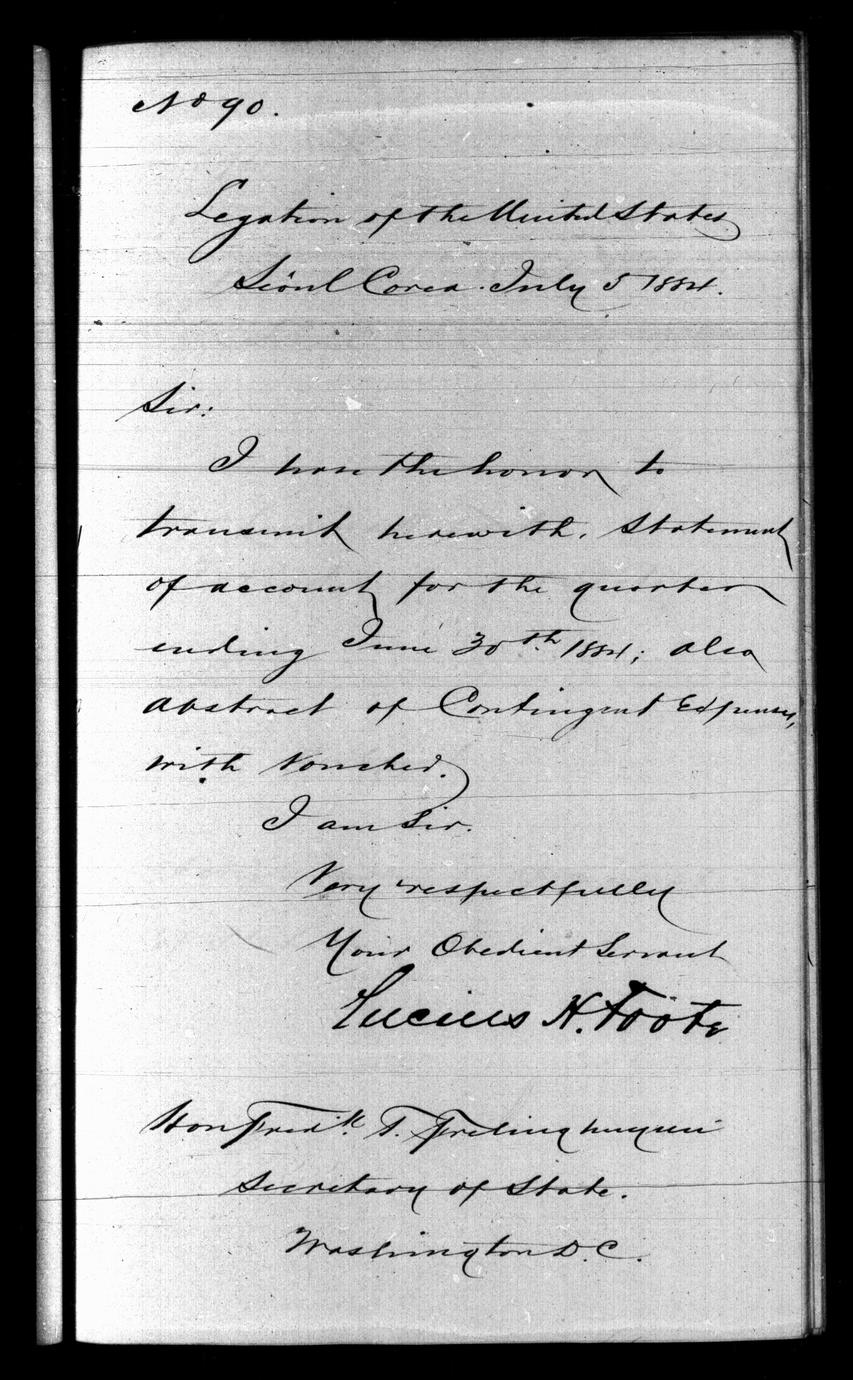 No 90.
Legation of the United States
Séoul Corea. July 5 1884.
Sir:
I have the honor to
transmit herewith, Statement
of account for the quarter
ending June 30th 1884; also
abstract of Contingent Expenses,
with Voucher.
I am Sir.
Very respectfully
Your Obedient Servant
Lucius H. Foote
Hon Fredk. T. Frelinghuysen
Secretary of State.
Washington D.C.